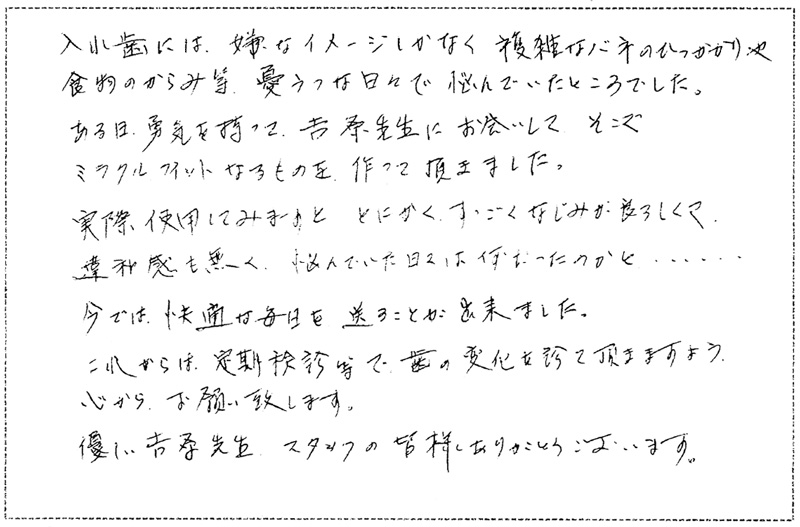 入れ歯には、嫌なイメージしかなく複雑なバネのひっかかりや
食物のからみ等、憂うつな日々で悩んでいたところでした。
ある日、勇気を持って、吉原先生にお会いして、そこで
ミラクルフィットなるものを、作って頂きました。
実際使用してみますと、とにかく、すっごくなじみが良ろしくて、
違和感も無く、悩んでいた日々は何だったのかと・・・・・・
今では、快適な毎日を送ることが出来ました。
これからは、定期検診等で、歯の変化を診て頂きますよう、
心から、お願い致します。
優しい吉原先生、スタッフの皆様ありがとうございます。